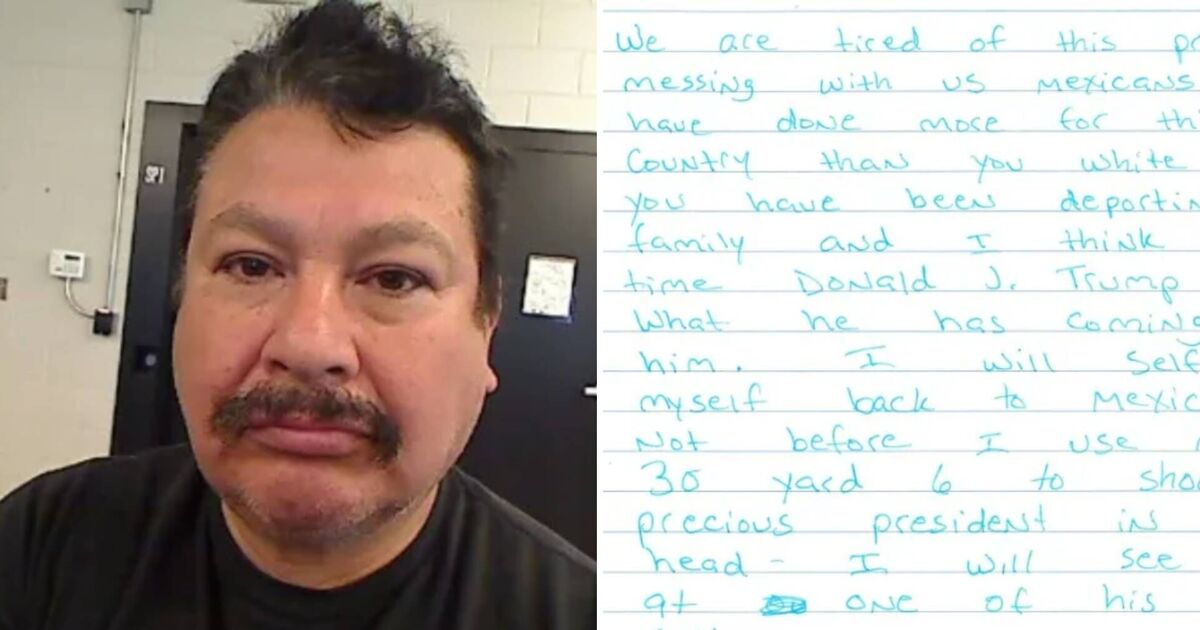 SP1
We are tired of this
messing with us Mexicans
have done more for
Country than you white
you have been
family and I think
time Donald J. Trump
What he has coming
him. I will self
myself back to
Not before I use
30 yard 6 to
precious president in
head - I will see
at one of his